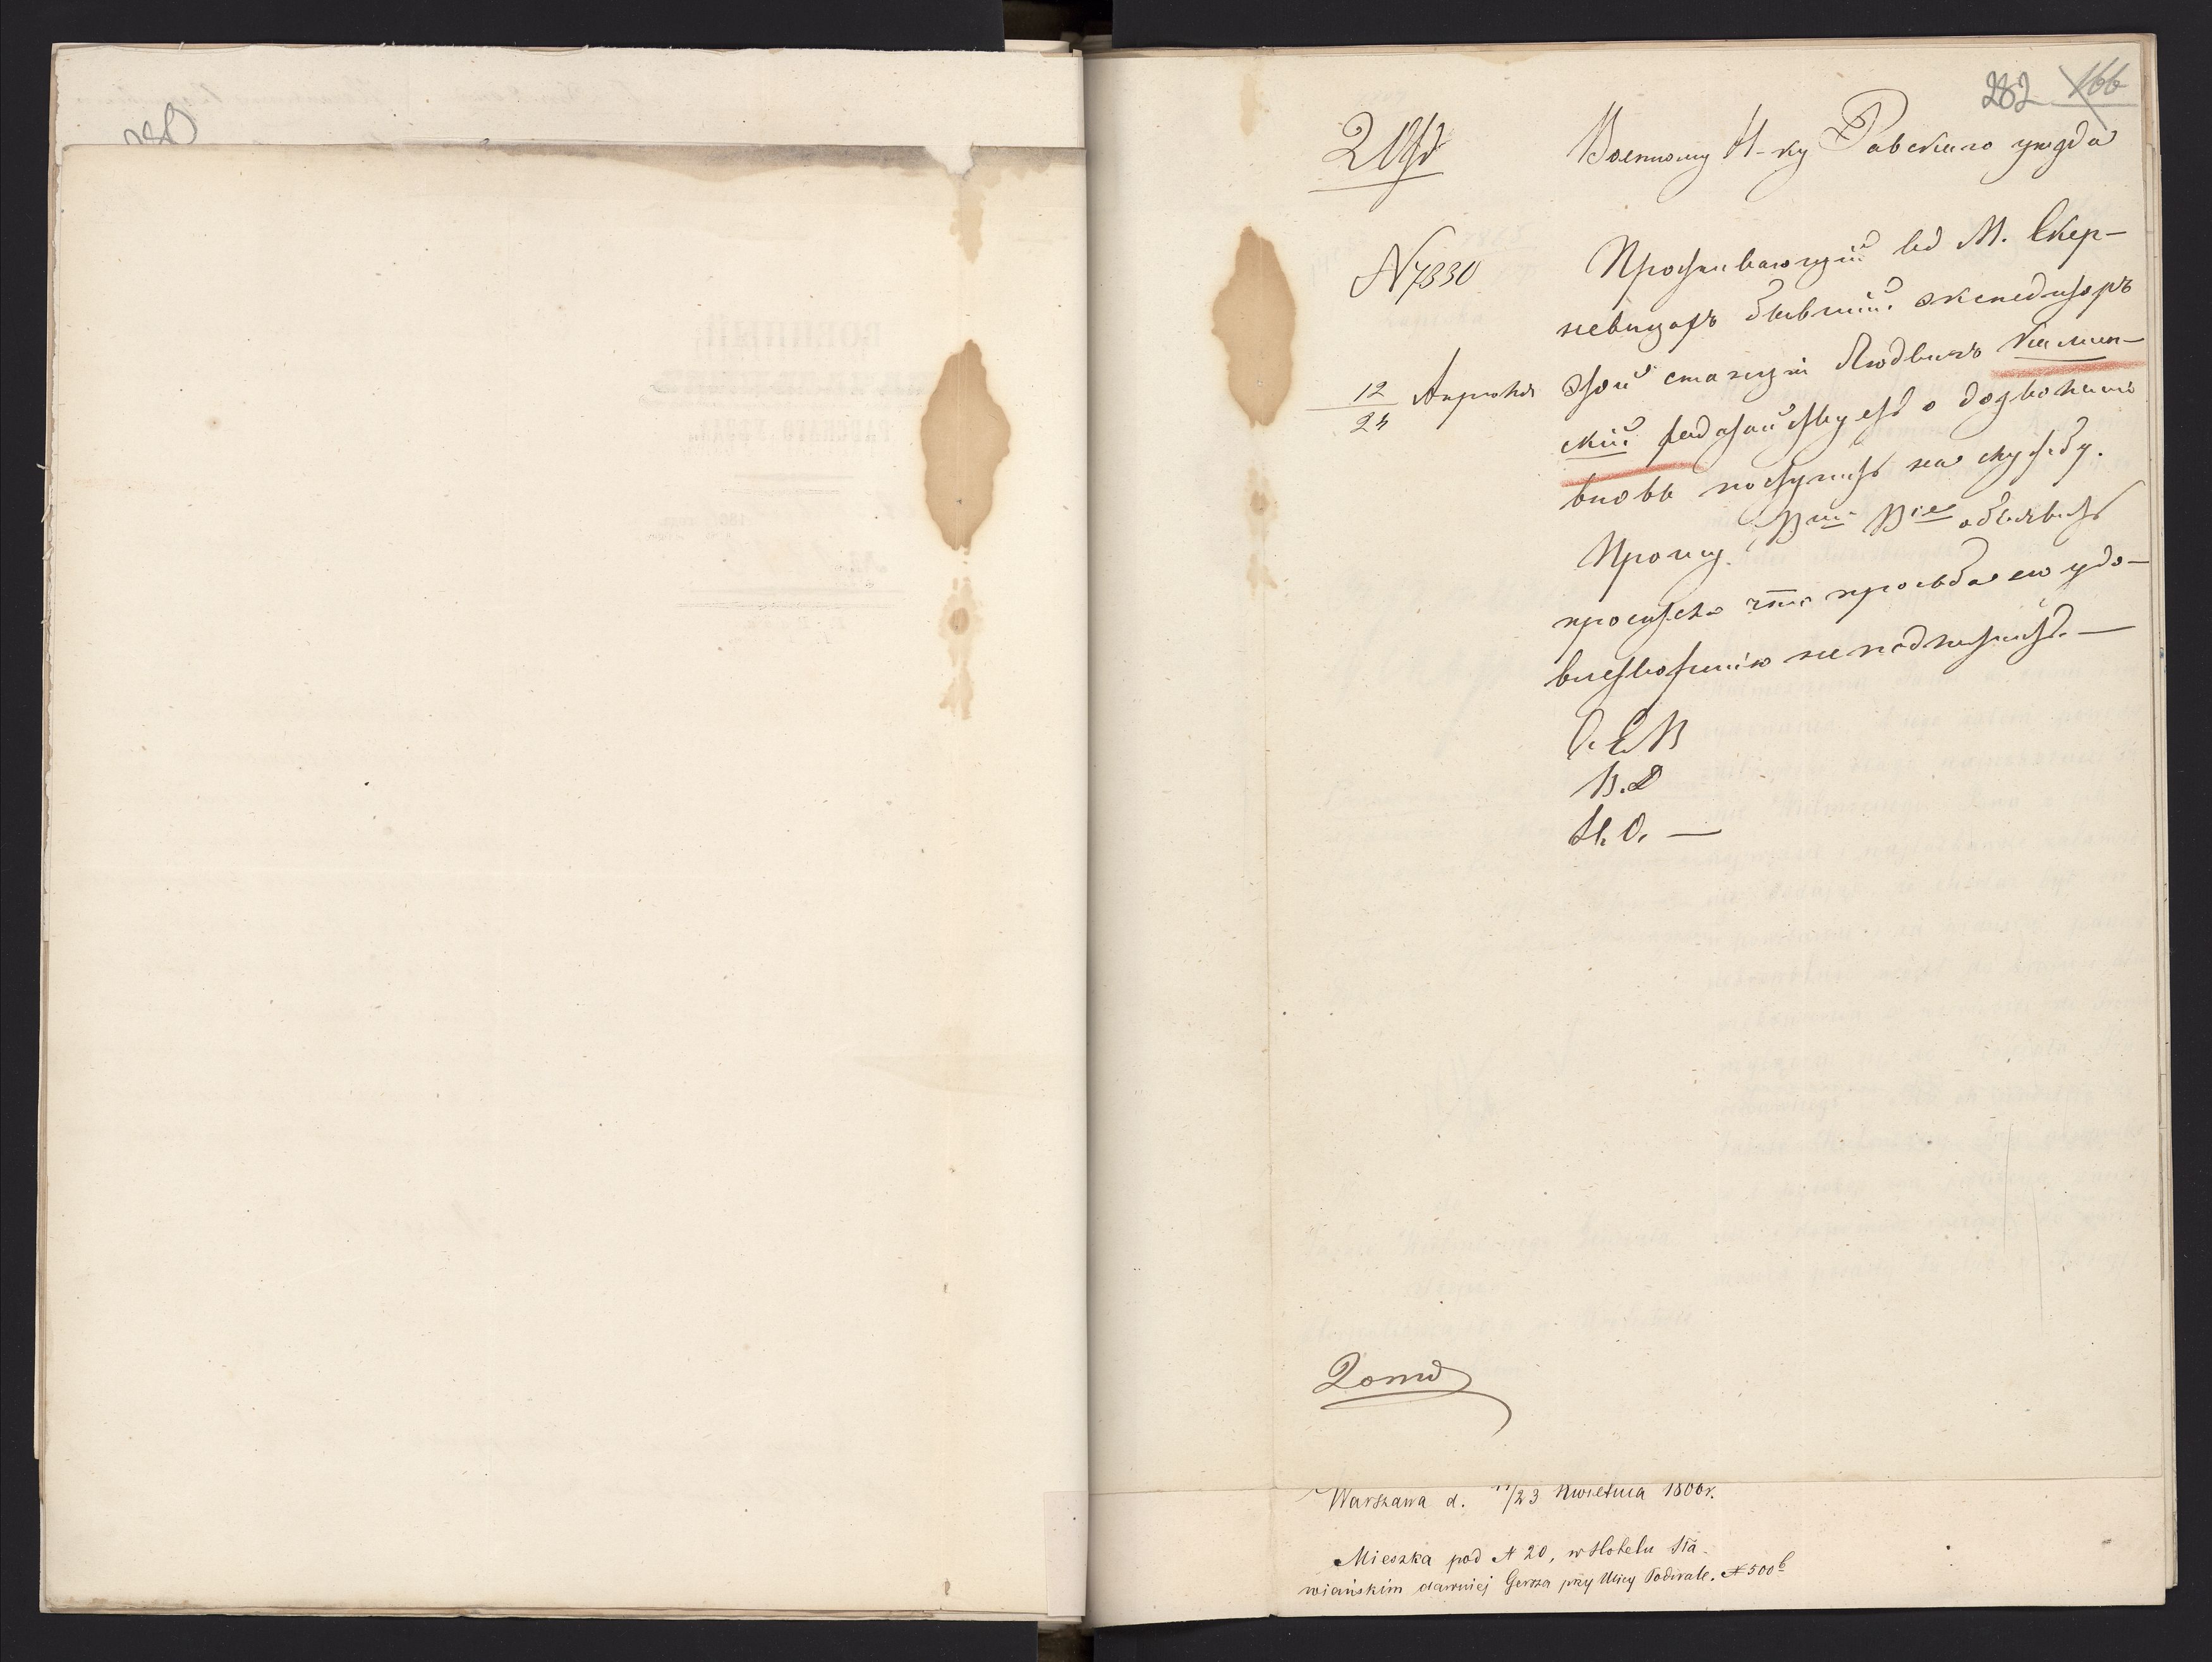 280
282 166
2 Отд
Военному Н-ку Равскаго уезда
N 7330
12/24 Апреля
Проживающій въ М. Скер-
невицахъ бывшій экспедиторъ
этой станціи Людвигъ Камин-
скій ходатайствуетъ о дозволеніи
вновь поступить на службу.
Прошу Вше Вiе объявить
просителю что просьба его удо-
влетворенію не подлежитъ. —
П. Е. В
В. Д
Н. О. —
Warszawa d. 11/23 Kwietnia 1866 r.
Mieszka pod N 20, w Hotelu Sła-
wiańskim dawniej Gersza przy Ulicy Podwale. N 500b